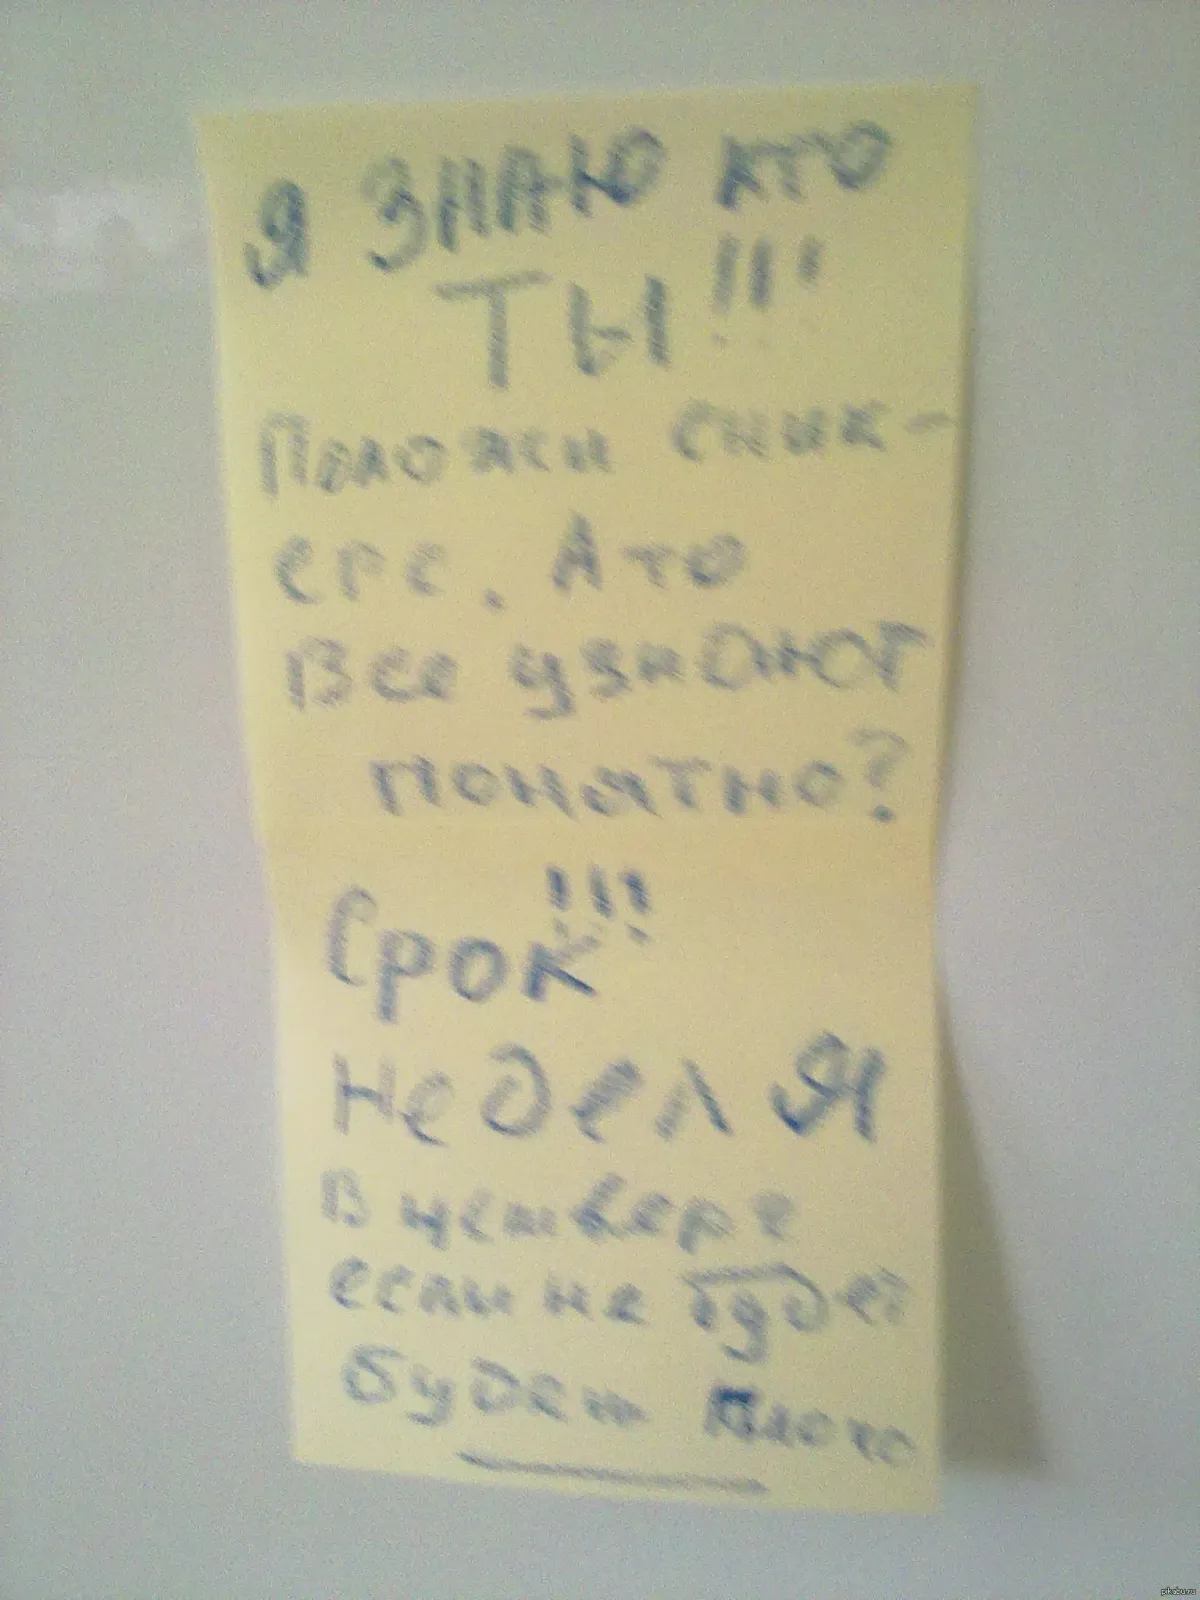 Я ЗНАЮ КТО
ТЫ!!!
Положи сник-
ерс. А то
Все узнают
понятно?
!!!
Срок
Неделя
В четверг
если не будет
будет плохо
pikabu.ru